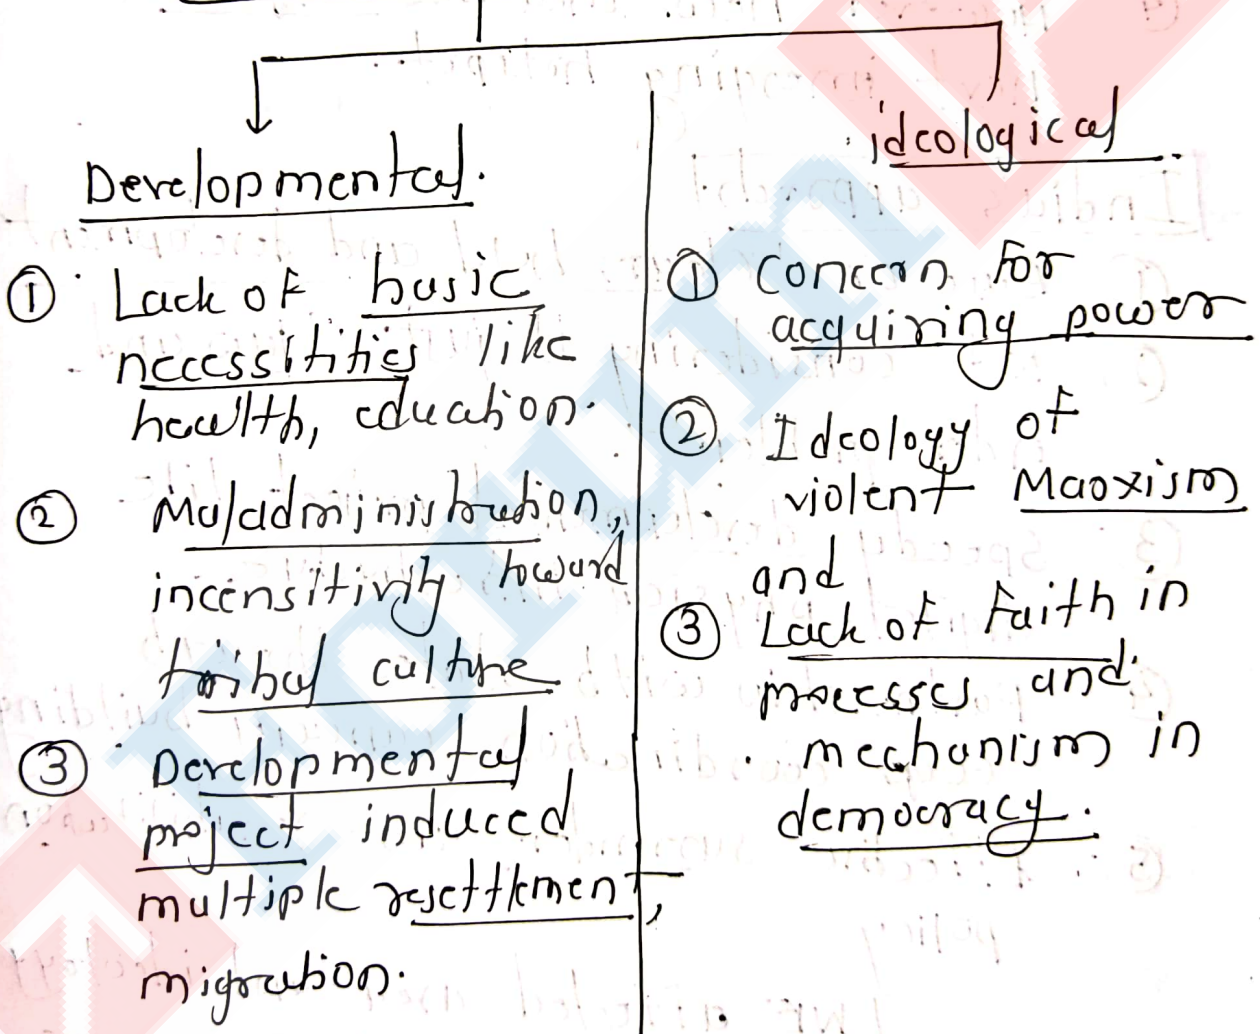 Developmental.
① Lack of basic
necessitities like
health, eduation.
② Maladministration,
incensitivity toward
tribal culture
③ Developmental
project induced
multiple resettlement,
migration.
ideological
① Concern for
acquiring power
② Ideology of
violent Maoxism
and
③ Lack of faith in
processes and
mechanism in
democracy.
Forum